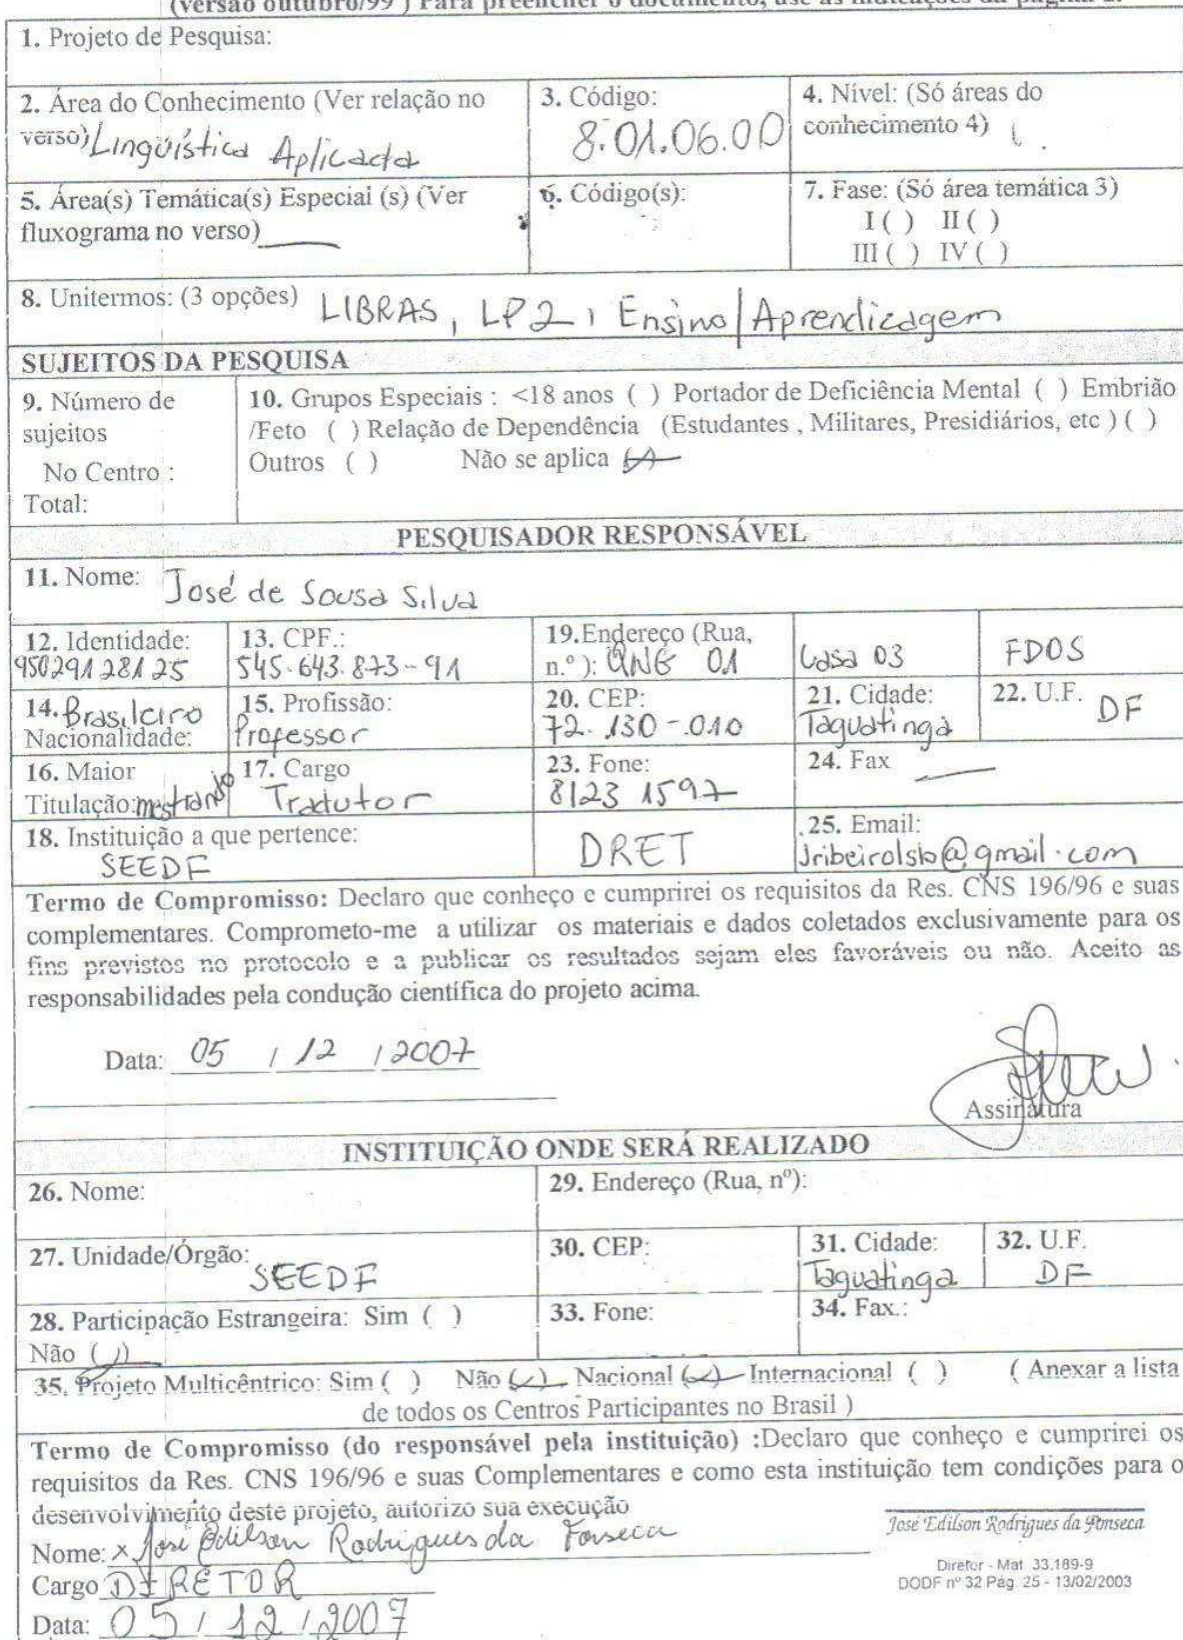 (versão outubro/99 ) Para preencher o documento, use as indicações da página 2.
1. Projeto de Pesquisa:
2. Área do Conhecimento (Ver relação no verso) Lingüística Aplicada
3. Código: 8.01.06.00
4. Nível: (Só áreas do conhecimento 4)
5. Área(s) Temática(s) Especial (s) (Ver fluxograma no verso)
6. Código(s):
7. Fase: (Só área temática 3)
I ( ) II ( )
III ( ) IV ( )
8. Unitermos: (3 opções) LIBRAS, LP2, Ensino/Aprendizagem
SUJEITOS DA PESQUISA
9. Número de sujeitos
No Centro :
Total:
10. Grupos Especiais : <18 anos ( ) Portador de Deficiência Mental ( ) Embrião
/Feto ( ) Relação de Dependência (Estudantes , Militares, Presidiários, etc ) ( )
Outros ( ) Não se aplica (x)
PESQUISADOR RESPONSÁVEL
11. Nome: José de Sousa Silva
12. Identidade: 95029128125
13. CPF.: 545.643.873-91
19.Endereço (Rua, n.º): QNG 01
Casa 03
FDOS
14. Brasileiro
Nacionalidade:
15. Profissão: Professor
20. CEP: 72.130-010
21. Cidade: Taguatinga
22. U.F. DF
16. Maior Titulação: mestrando
17. Cargo Tradutor
23. Fone: 8123 1597
24. Fax
18. Instituição a que pertence: SEEDF
DRET
25. Email: Jribeirolsb@gmail.com
Termo de Compromisso: Declaro que conheço e cumprirei os requisitos da Res. CNS 196/96 e suas
complementares. Comprometo-me a utilizar os materiais e dados coletados exclusivamente para os
fins previstos no protocolo e a publicar os resultados sejam eles favoráveis ou não. Aceito as
responsabilidades pela condução científica do projeto acima.
Data: 05 / 12 / 2007
Assinatura
INSTITUIÇÃO ONDE SERÁ REALIZADO
26. Nome:
29. Endereço (Rua, nº):
27. Unidade/Órgão: SEEDF
30. CEP:
31. Cidade: Taguatinga
32. U.F. DF
28. Participação Estrangeira: Sim ( )
Não ( )
33. Fone:
34. Fax.:
35. Projeto Multicêntrico: Sim ( ) Não ( ) Nacional ( ) Internacional ( ) ( Anexar a lista
de todos os Centros Participantes no Brasil )
Termo de Compromisso (do responsável pela instituição) :Declaro que conheço e cumprirei os
requisitos da Res. CNS 196/96 e suas Complementares e como esta instituição tem condições para o
desenvolvimento deste projeto, autorizo sua execução
Nome: x José Edilson Rodrigues da Fonseca
Cargo DIRETOR
Data: 05 / 12 / 2007
José Edilson Rodrigues da Fonseca
Diretor - Mat. 33.189-9
DODF nº 32 Pág. 25 - 13/02/2003